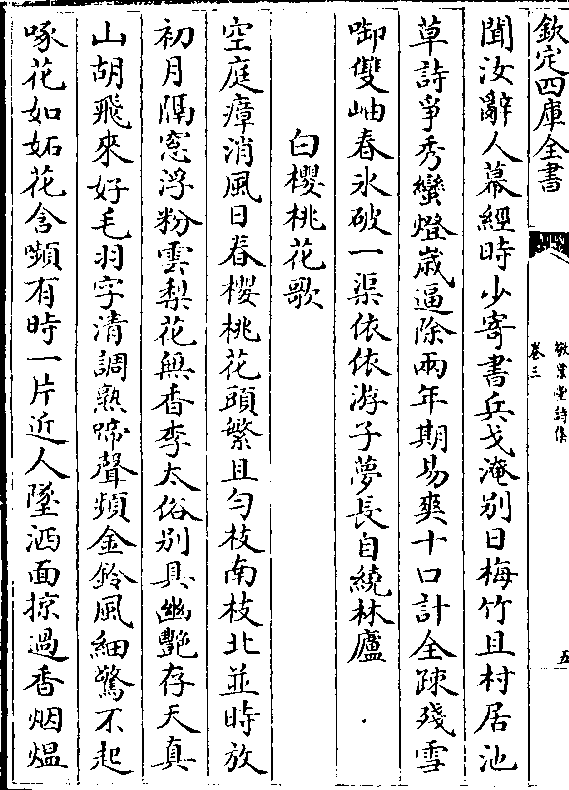 欽定四庫全書
敬業堂詩集
卷三
五
聞汝辭人幕經時少寄書兵戈淹别日梅竹且村居池
草詩爭秀蠻燈嵗逼除兩年期易爽十口計全疎殘雪
啣雙岫春氷破一渠依依游子夢長自繞林廬
白櫻桃花歌
空庭瘴消風日春櫻桃花頭繁且勻枝南枝北並時放
初月隔窓浮粉雲梨花無香李太俗别具幽艷存天真
山胡飛來好毛羽字清調熟啼聲頻金鈴風細驚不起
啄花如妬花含嚬有時一片近人墜洒面掠過香烟熅